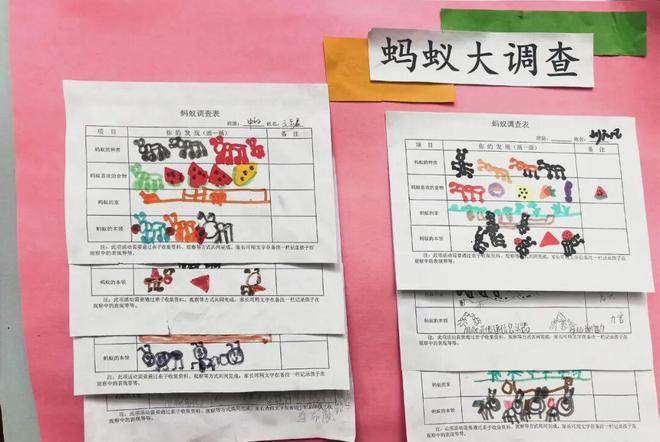 蚂蚁大调查
蚂蚁调查表
班级： 姓名：
项 目 你 的 发 现（画一画） 备 注
蚂蚁的种类
蚂蚁喜欢的食物
蚂蚁的家
蚂蚁的本领
注：此项活动需要通过亲子收集资料、观察等方式共同完成，家长可用文字在备注一栏记录孩子在
观察中的表现等等。
蚂蚁的本领
注：此项活动需要通过亲子收集资料、观察等方式共同完成，家长可用文字在备注一栏记录孩子在
观察中的表现等等。
蚂蚁的本领
注：此项活动需要通过亲子收集资料、观察等方式共同完成，家长可用文字在备注一栏记录孩子在
观察中的表现等等。
蚂蚁调查表
班级： 姓名：
项 目 你 的 发 现（画一画） 备 注
蚂蚁的种类
蚂蚁喜欢的食物
蚂蚁的家
蚂蚁的本领
注：此项活动需要通过亲子收集资料、观察等方式共同完成，家长可用文字在备注一栏记录孩子在
观察中的表现等等。
蚂蚁的本领
注：此项活动需要通过亲子收集资料、观察等方式共同完成，家长可用文字在备注一栏记录孩子在
观察中的表现等等。
蚂蚁的家
蚂蚁的本领
注：此项活动需要通过亲子收集资料、观察等方式共同完成，家长可用文字在备注一栏记录孩子在